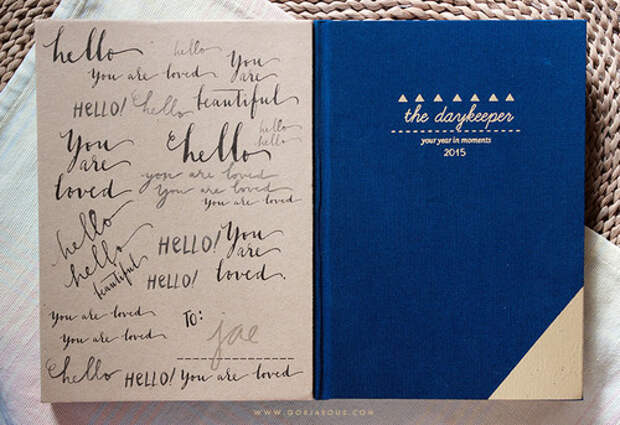 hello
hello
You are loved
You
are
beautiful
HELLO!
hello
You
are
loved
hello
hello
hello
you are loved
You are loved
You are loved
hello
hello
beautiful
HELLO!
HELLO!
You
are
loved.
You are loved
You are loved
TO:
jae
hello
HELLO!
You are loved
the daykeeper
your year in moments
2015
WWW.GORJAROUS.COM